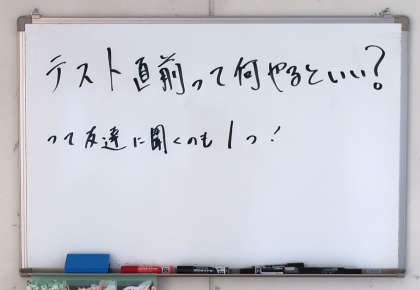 テスト直前って何やるといい?
って友達に聞くのも1つ!